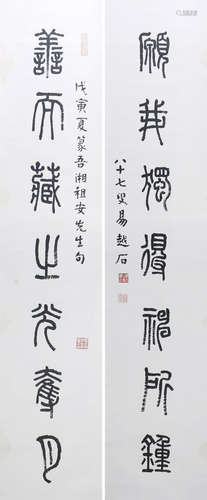 顧我獨得神所鍾
八十七叟易越石
戊寅夏篆吾湘祖安先生句
善而藏之光奪月